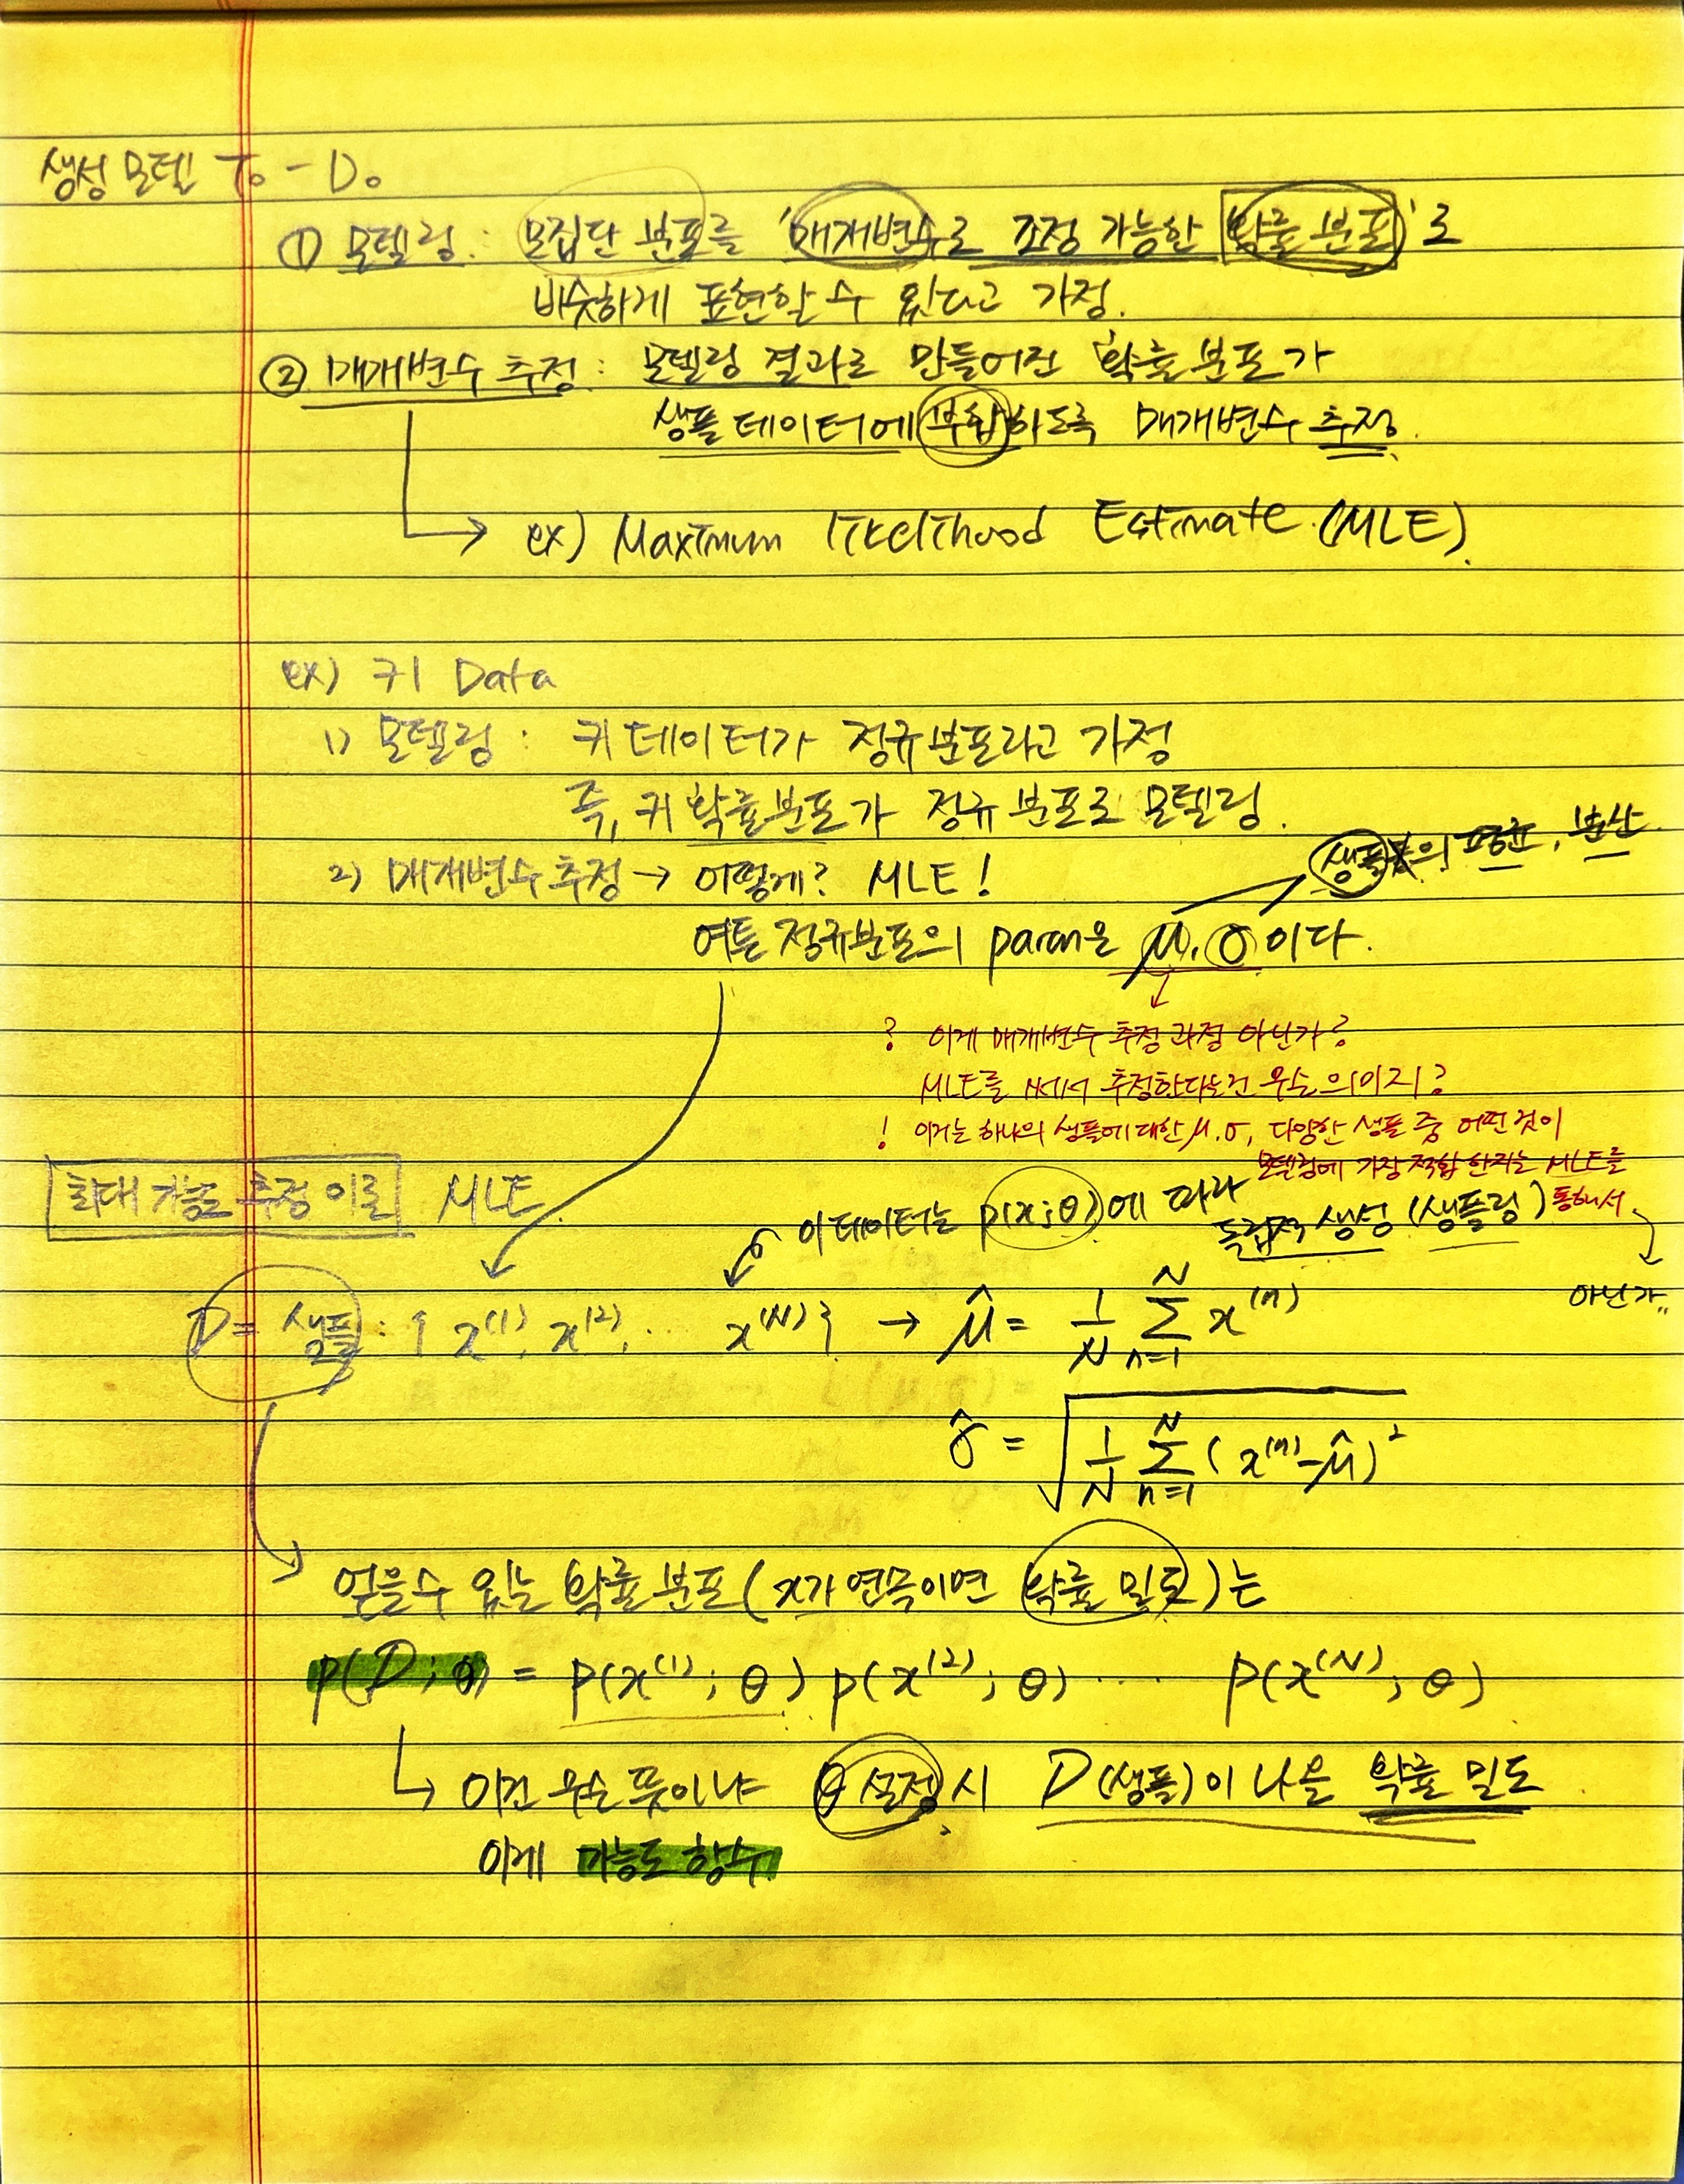 생성 모델 To-Do
① 모델링 : 모집단 분포를 '매개변수로 조정 가능한 확률 분포'로
비슷하게 표현할 수 있다고 가정.
② 매개변수 추정 : 모델링 결과로 만들어진 확률분포가
샘플 데이터에 부합하도록 매개변수 추정.
ex) Maximum likelihood Estimate (MLE).
ex) 키 Data
1) 모델링 : 키 데이터가 정규분포라고 가정
즉, 키 확률분포가 정규 분포로 모델링.
샘플의 평균, 분산.
2) 매개변수 추정 → 어떻게? MLE!
여튼 정규분포의 param은 μ, σ 이다.
? 이게 매개변수 추정 과정 아닌가?
MLE를 써서 추정한다는건 무슨 의미지?
! 이거는 하나의 샘플에 대한 μ, σ, 다양한 샘플 중 어떤 것이
모델링에 가장 적합한지는 MLE를
통해서
아닌가..
최대 가능도 추정 이론 MLE.
이 데이터는 p(x;θ)에 따라
독립적 생성 (샘플링)
D = 샘플 : { x⁽¹⁾, x⁽²⁾, ... x⁽ᴺ⁾ } → μ̂ = 1/N Σ_{n=1}^{N} x⁽ⁿ⁾
σ̂ = √(1/N Σ_{n=1}^{N} (x⁽ⁿ⁾ - μ̂)²)
얻을 수 있는 확률 분포 (x가 연속이면 확률 밀도)는
p(D; θ) = p(x⁽¹⁾; θ) p(x⁽²⁾; θ) ... p(x⁽ᴺ⁾; θ)
이건 무슨 뜻이냐 θ 설정 시 D(샘플)이 나올 확률 밀도
이게 가능도 함수.